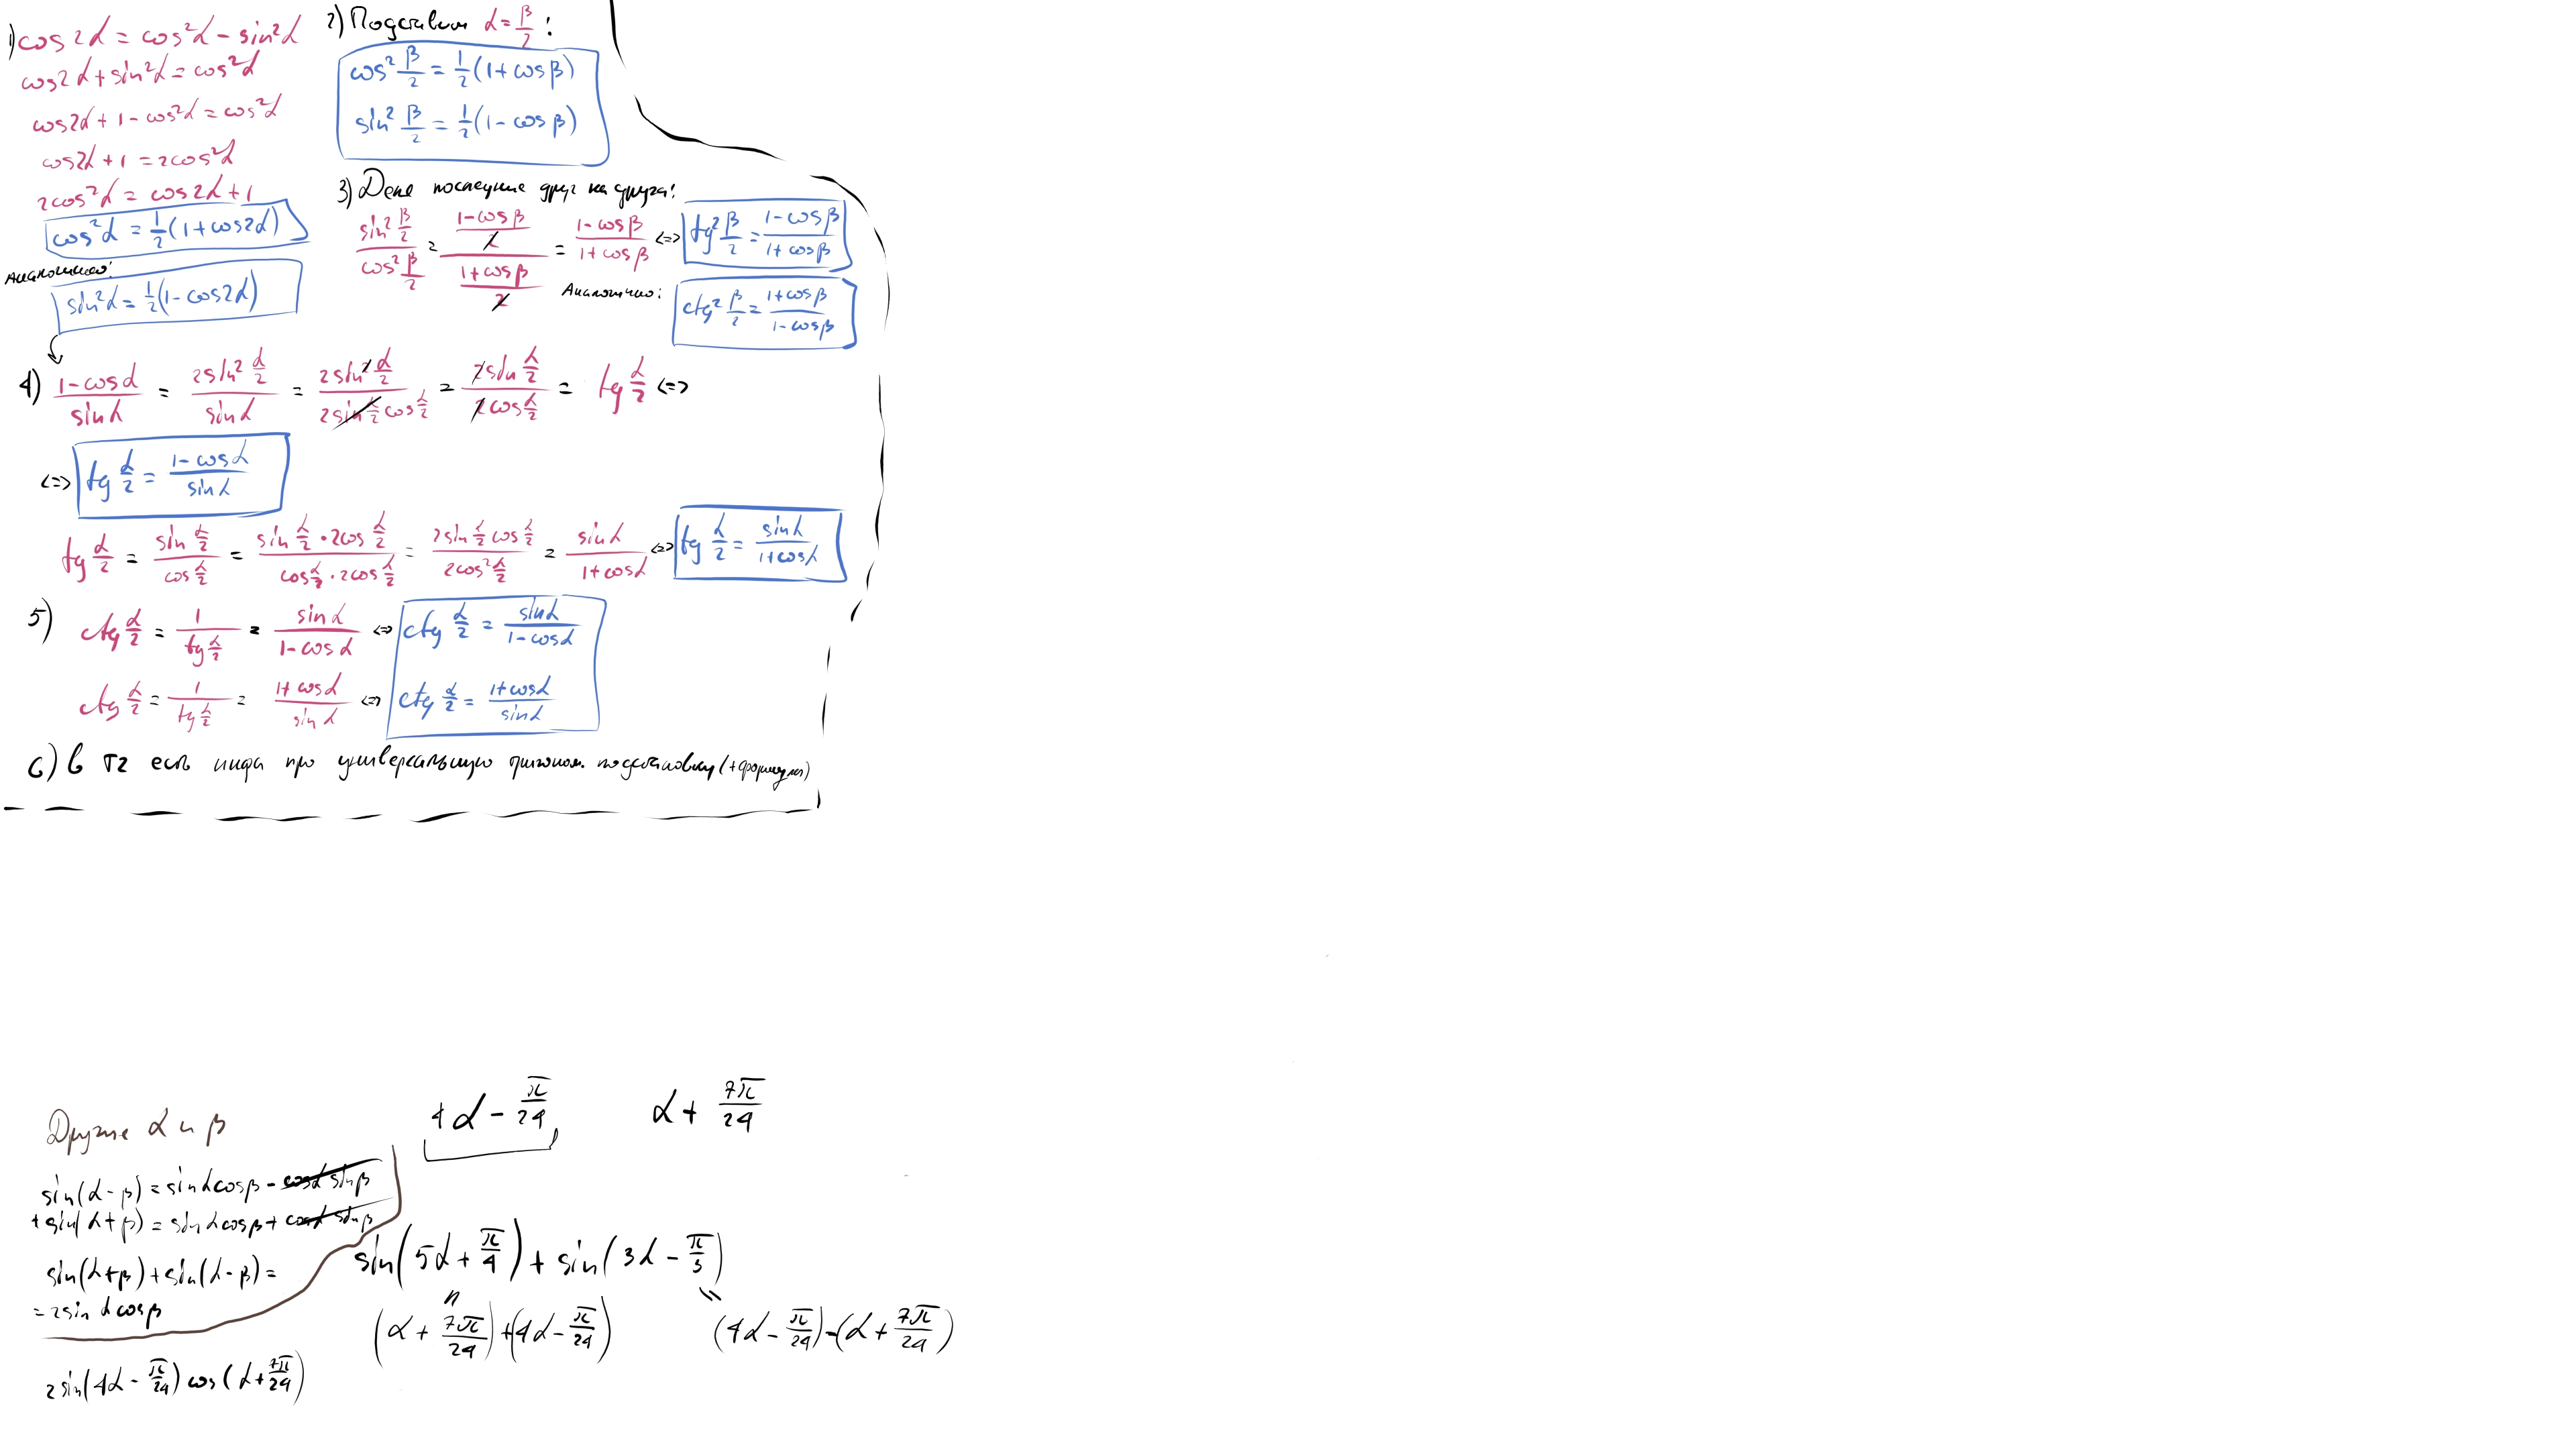 1) cos2α = cos²α - sin²α
cos2α + sin²α = cos²α
cos2α + 1 - cos²α = cos²α
cos2α + 1 = 2cos²α
2cos²α = cos2α + 1
cos²α = 1/2 (1 + cos2α)
Аналогично:
sin²α = 1/2 (1 - cos2α)
2) Подставим α = β/2 :
cos² β/2 = 1/2 (1 + cosβ)
sin² β/2 = 1/2 (1 - cosβ)
3) Делю последние друг на друга:
(sin² β/2)/(cos² β/2) = ((1-cosβ)/2)/((1+cosβ)/2) = (1-cosβ)/(1+cosβ) <=> tg² β/2 = (1-cosβ)/(1+cosβ)
Аналогично: ctg² β/2 = (1+cosβ)/(1-cosβ)
4) (1-cosα)/(sinα) = (2sin² α/2)/(sinα) = (2sin² α/2)/(2sin α/2 cos α/2) = (2sin α/2)/(2cos α/2) = tg α/2 <=>
<=> tg α/2 = (1-cosα)/(sinα)
tg α/2 = (sin α/2)/(cos α/2) = (sin α/2 · 2cos α/2)/(cos α/2 · 2cos α/2) = (2sin α/2 cos α/2)/(2cos² α/2) = (sinα)/(1+cosα) <=> tg α/2 = (sinα)/(1+cosα)
5) ctg α/2 = 1/(tg α/2) = (sinα)/(1-cosα) <=> ctg α/2 = (sinα)/(1-cosα)
ctg α/2 = 1/(tg α/2) = (1+cosα)/(sinα) <=> ctg α/2 = (1+cosα)/(sinα)
6) В тг есть инфа про универсальную тригоном. подстановку (+формулы)
Другие α и β
sin(α-β) = sinαcosβ - cosα sinβ
+ sin(α+β) = sinαcosβ + cosα sinβ
sin(α+β) + sin(α-β) =
= 2sinαcosβ
2sin(4α - π/24) cos(α + 7π/24)
4α - π/24    α + 7π/24
sin(5α + π/4) + sin(3α - π/3)
(α + 7π/24) + (4α - π/24)    (4α - π/24) - (α + 7π/24)